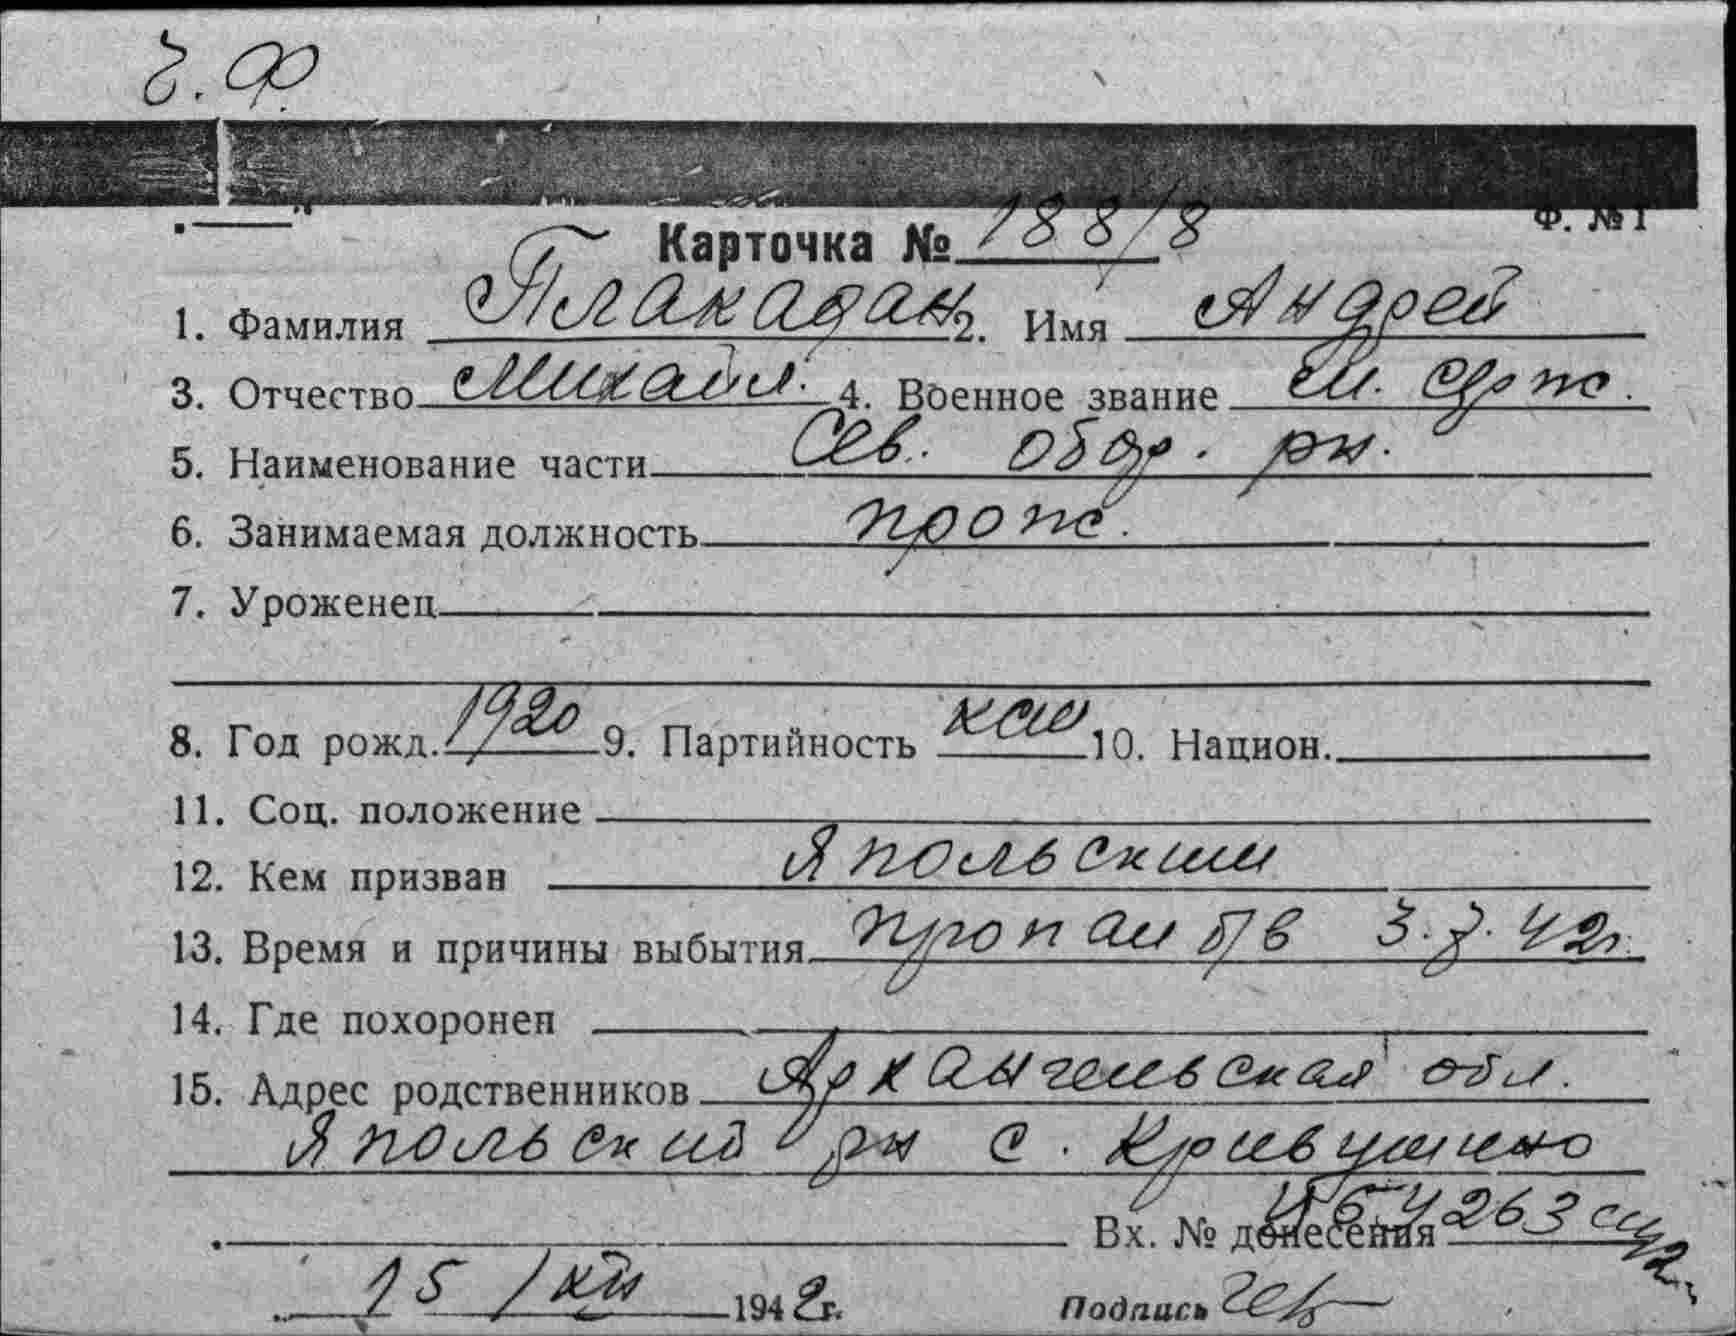 Ч.Ф.
Ф. № 1
Карточка № 188/8
1. Фамилия Плакадан 2. Имя Андрей
3. Отчество Михайл. 4. Военное звание мл. срж.
5. Наименование части Сев. обор. рн.
6. Занимаемая должность прож.
7. Уроженец
8. Год рожд. 1920 9. Партийность 10. Национ.
11. Соц. положение
12. Кем призван Япольским
13. Время и причины выбытия пропал б/в 3.7.42г.
14. Где похоронен
15. Адрес родственников Архангельская обл.
Япольский рн с. Кривушино
Вх. № донесения 263
15/XII 1942г. Подпись